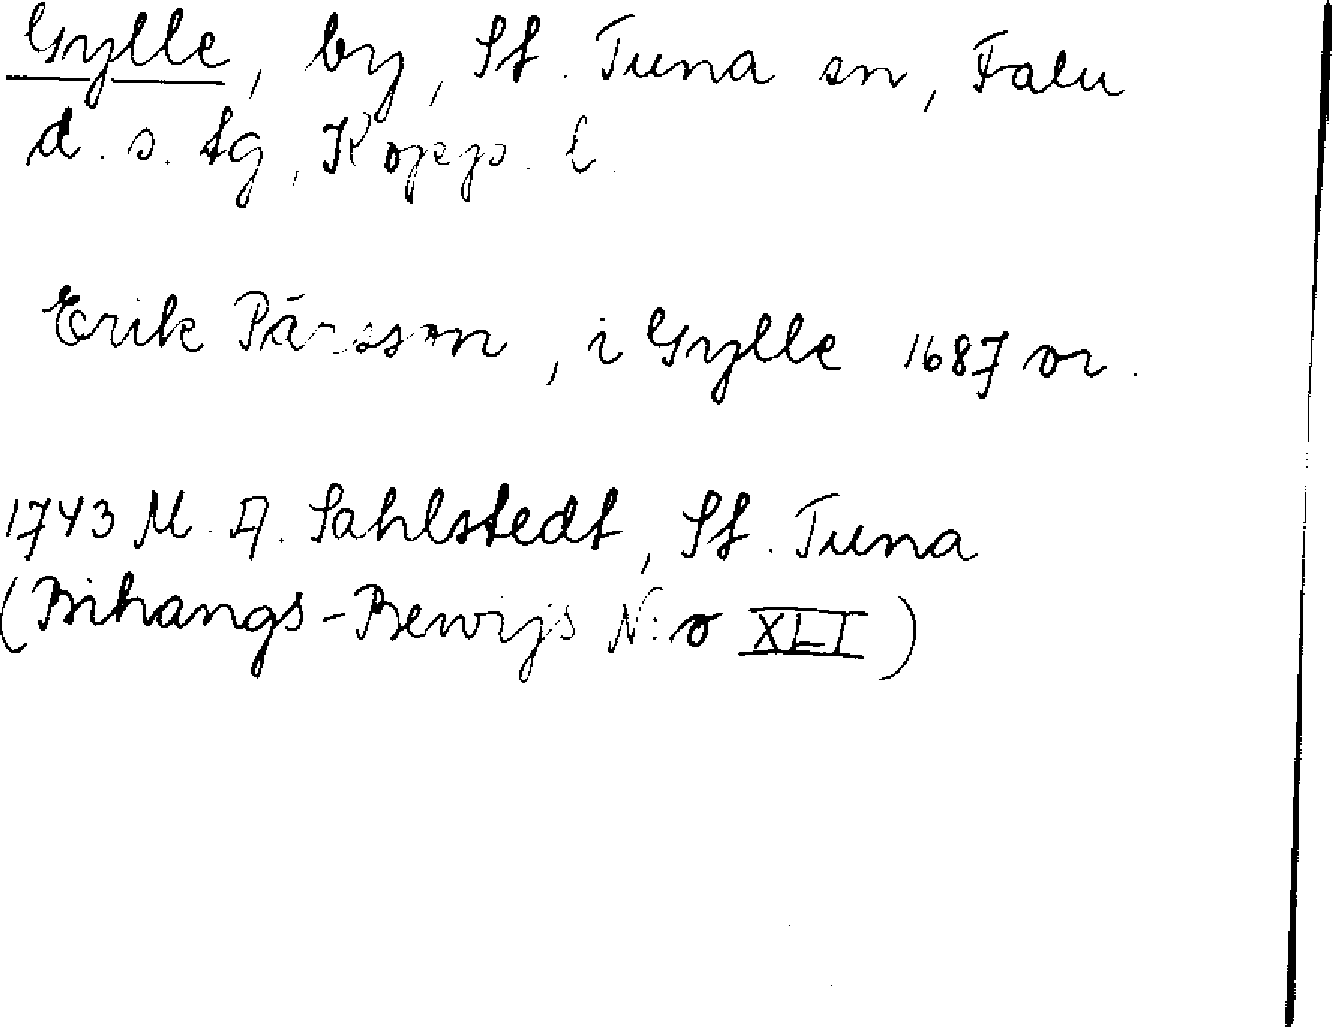 Gylle, by, St. Tuna sn, Falu
d. s. tg, Kopp. l.
Erik Pärsson, i Gylle 1687 or.
1743 M. A. Sahlstedt, St. Tuna
(Bihangs-Bewijs N:o XLI)